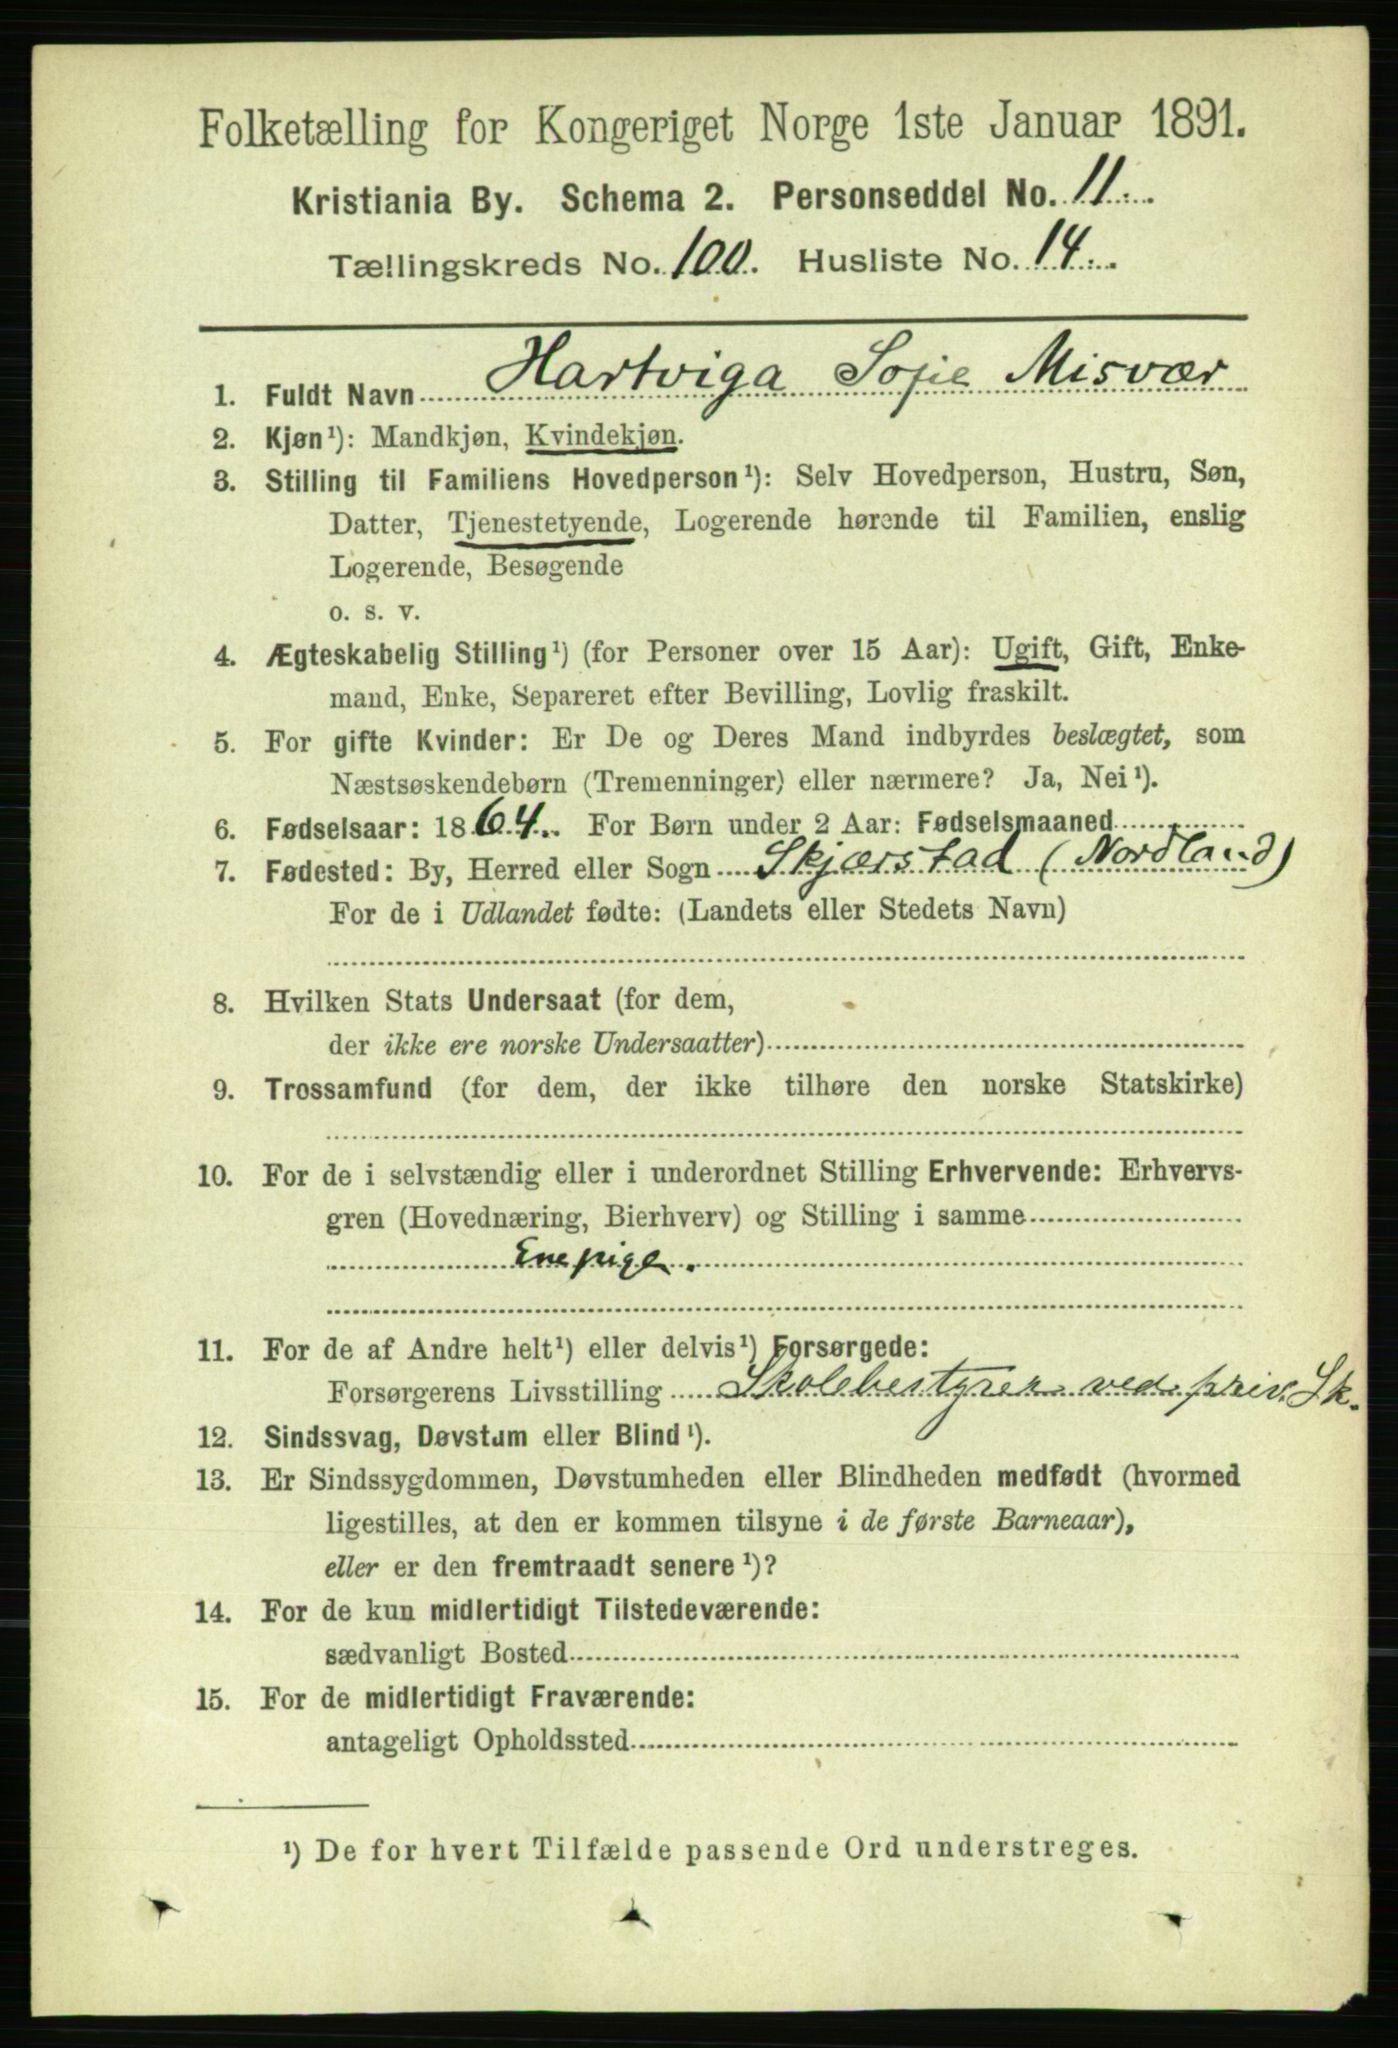 Folketælling for Kongeriget Norge 1ste Januar 1891.
Kristiania By. Schema 2. Personseddel No. 11.
Tællingskreds No. 100. Husliste No. 14.
1. Fuldt Navn Hartviga Sofie Misvær
2. Kjøn¹): Mandkjøn, Kvindekjøn.
3. Stilling til Familiens Hovedperson¹): Selv Hovedperson, Hustru, Søn,
Datter, Tjenestetyende, Logerende hørende til Familien, enslig
Logerende, Besøgende
o. s. v.
4. Ægteskabelig Stilling¹) (for Personer over 15 Aar): Ugift, Gift, Enke-
mand, Enke, Separeret efter Bevilling, Lovlig fraskilt.
5. For gifte Kvinder: Er De og Deres Mand indbyrdes beslægtet, som
Næstsøskendebørn (Tremenninger) eller nærmere? Ja, Nei¹).
6. Fødselsaar: 1864. For Børn under 2 Aar: Fødselsmaaned
7. Fødested: By, Herred eller Sogn Skjærstad (Nordland)
For de i Udlandet fødte: (Landets eller Stedets Navn)
8. Hvilken Stats Undersaat (for dem,
der ikke ere norske Undersaatter)
9. Trossamfund (for dem, der ikke tilhøre den norske Statskirke)
10. For de i selvstændig eller i underordnet Stilling Erhvervende: Erhvervs-
gren (Hovednæring, Bierhverv) og Stilling i samme
Enepige.
11. For de af Andre helt¹) eller delvis¹) Forsørgede:
Forsørgerens Livsstilling Skolebestyrer ved priv. Sk.
12. Sindssvag, Døvstum eller Blind¹).
13. Er Sindssygdommen, Døvstumheden eller Blindheden medfødt (hvormed
ligestilles, at den er kommen tilsyne i de første Barneaar),
eller er den fremtraadt senere¹)?
14. For de kun midlertidigt Tilstedeværende:
sædvanligt Bosted
15. For de midlertidigt Fraværende:
antageligt Opholdssted
¹) De for hvert Tilfælde passende Ord understreges.